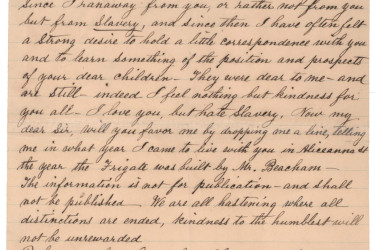 since I ranaway from you, or rather not from you
but from Slavery, and since then I have often felt
a strong desire to hold a little corespondence with you
and to learn something of the position and prospects
of your dear children— They were dear to me— and
are still— indeed I feel nothing but kindness for
you all— I love you, but hate Slavery. Now my
dear Sir, will you favor me by dropping me a line, telling
me in what year I came to live with you in Aliceanna St
the year the Frigate was built by Mr. Beacham—
The information is not for publication— and shall
not be published— We are all hastening where all
distinctions are ended, kindness to the humblest will
not be unrewarded